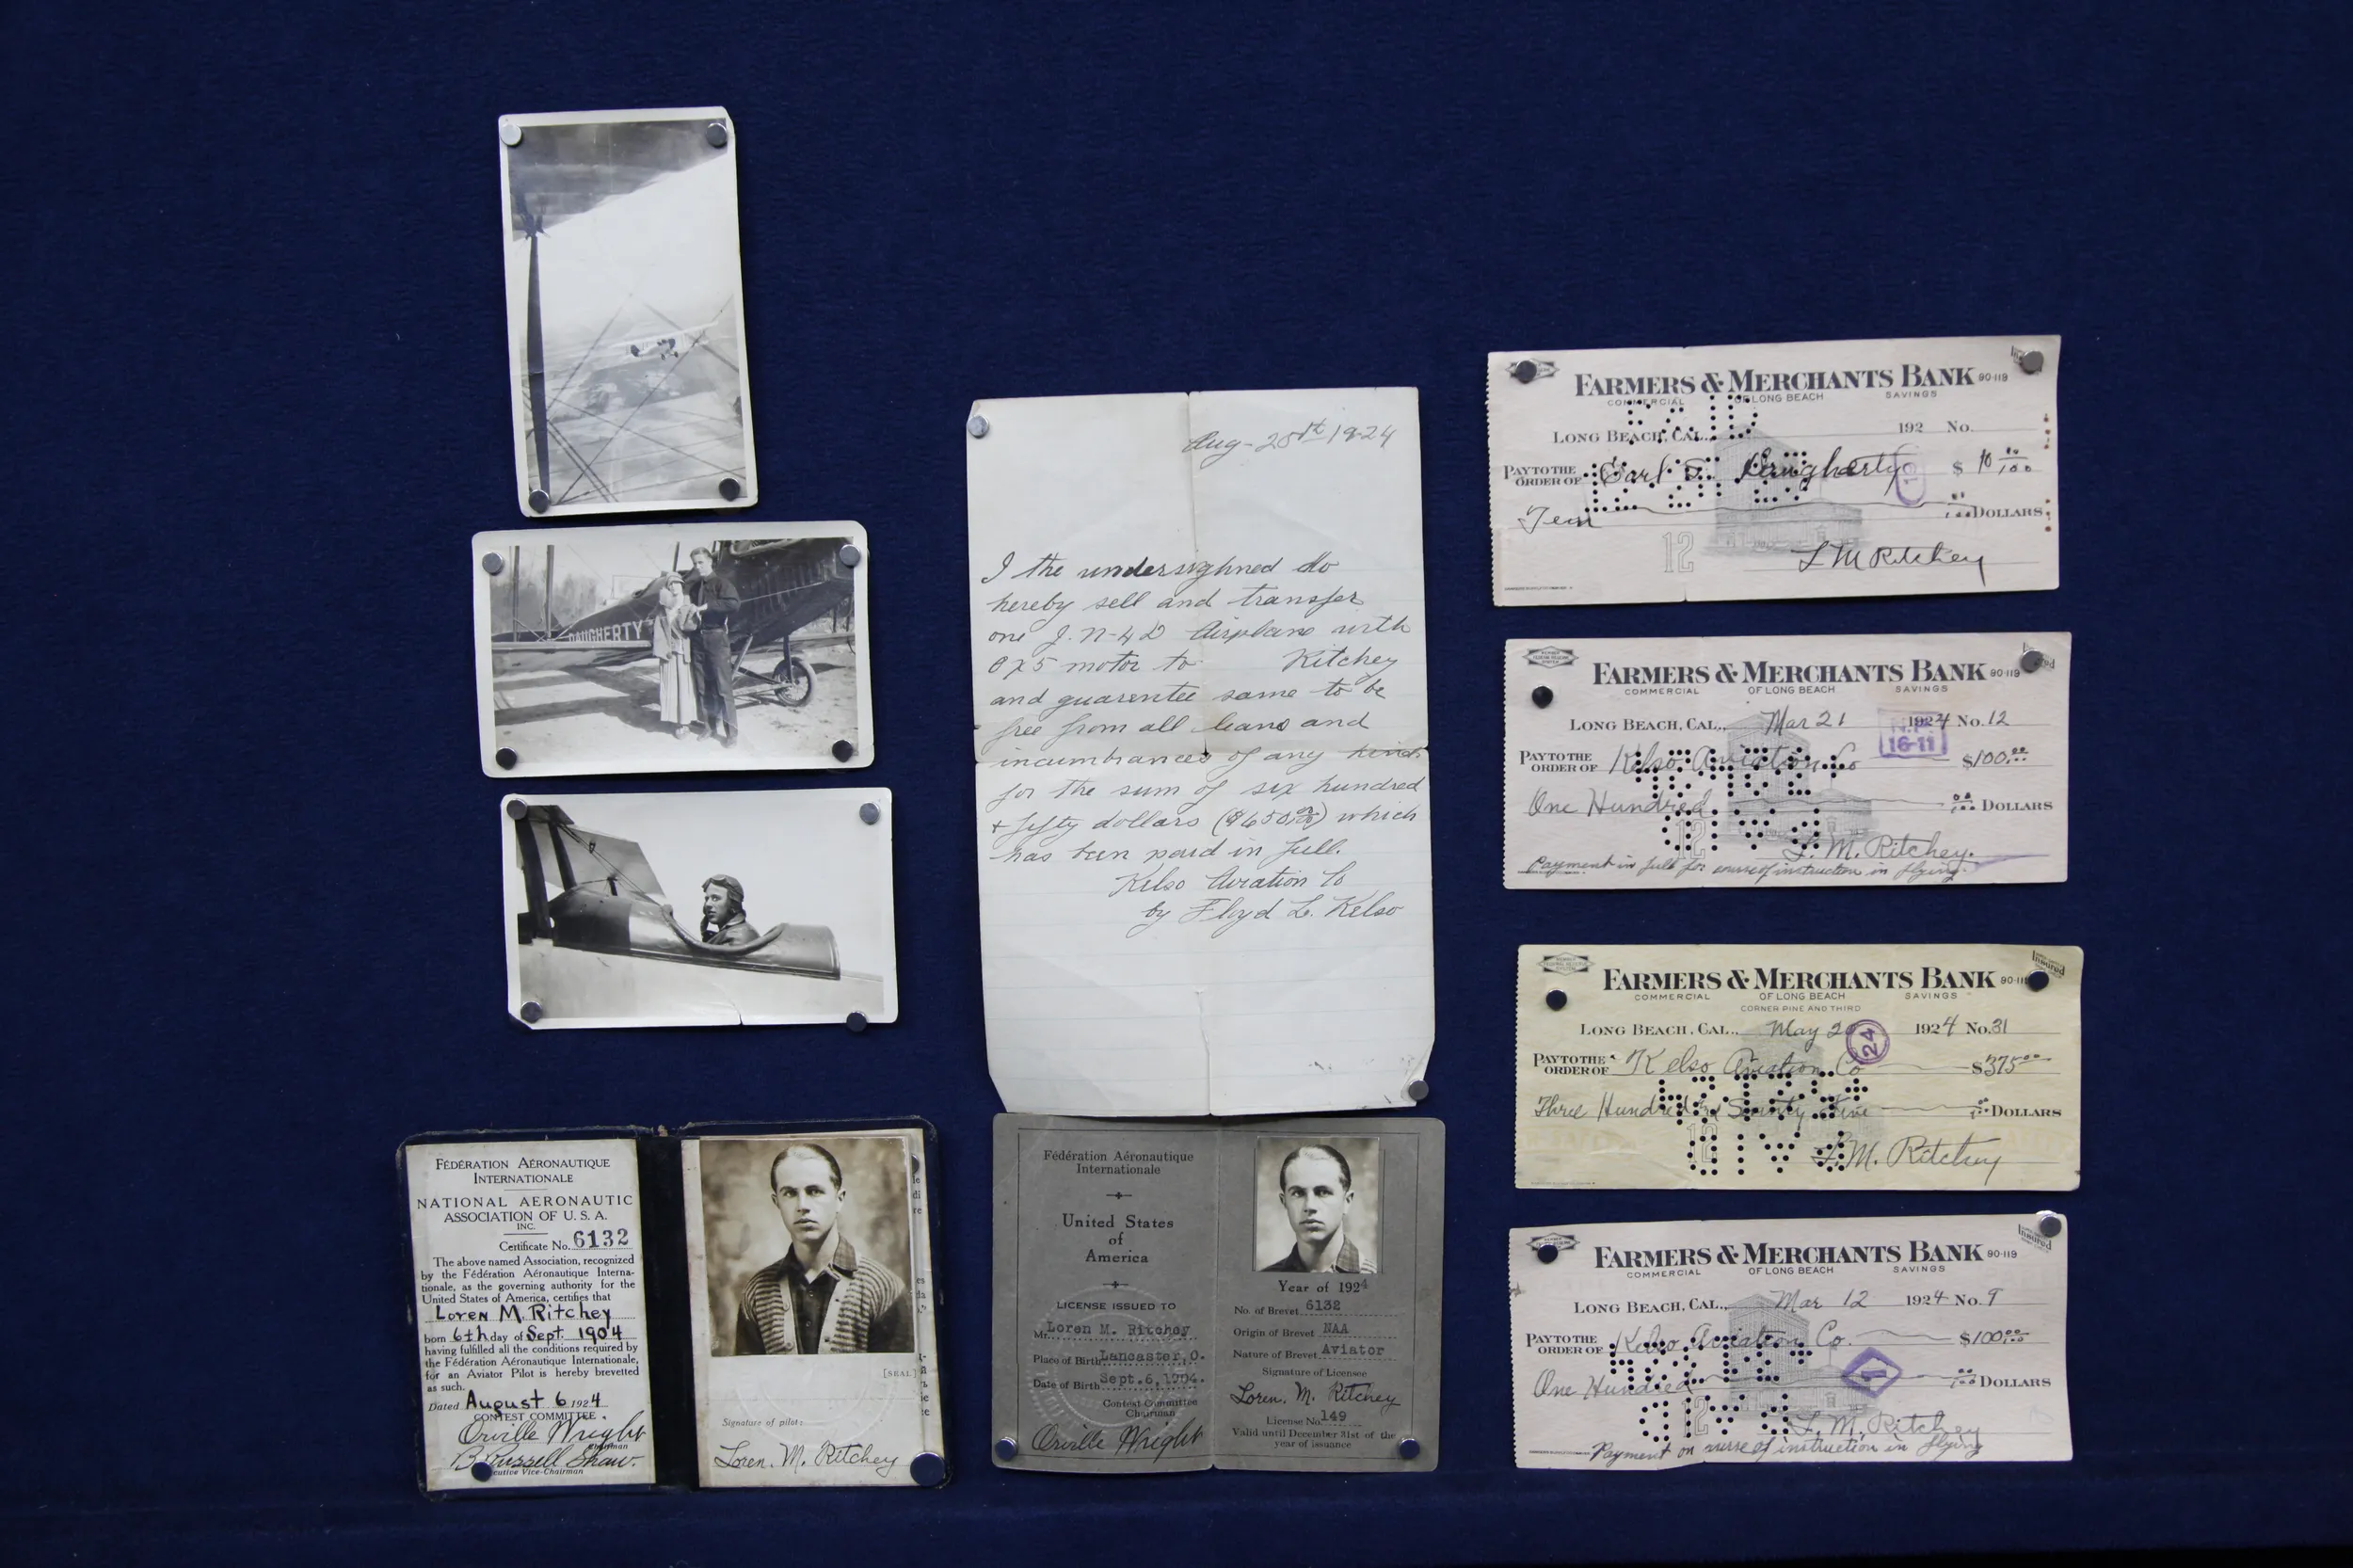 DAUGHERTY
FÉDÉRATION AÉRONAUTIQUE
INTERNATIONALE
NATIONAL AERONAUTIC
ASSOCIATION OF U. S. A.
INC.
Certificate No. 6132
The above named Association, recognized
by the Fédération Aéronautique Interna-
tionale, as the governing authority for the
United States of America, certifies that
Loren M. Ritchey
born 6th day of Sept. 1904
having fulfilled all the conditions required by
the Fédération Aéronautique Internationale,
for an Aviator Pilot is hereby brevetted
as such.
Dated August 6 1924
CONTEST COMMITTEE.
Orville Wright
Chairman
B. Russell Shaw.
Executive Vice-Chairman
[SEAL]
Signature of pilot:
Loren. M. Ritchey
Aug- 25th 1924
I the undersighned do
hereby sell and transfer
one J.N-4D Airplane with
OX5 motor to Ritchey
and guarentee same to be
free from all leans and
incumbrances of any kind.
for the sum of six hundred
+ fifty dollars ($650.00/100) which
has been paid in full.
Kelso Aviation Co
by Floyd L. Kelso
Fédération Aéronautique
Internationale
United States
of
America
LICENSE ISSUED TO
Mr. Loren M. Ritchey
Place of Birth Lancaster, O.
Date of Birth Sept. 6, 1904.
Contest Committee
Chairman
Orville Wright
Year of 1924
No. of Brevet 6132
Origin of Brevet NAA
Nature of Brevet Aviator
Signature of Licensee
Loren. M. Ritchey
License No. 149
Valid until December 31st of the
year of issuance
FARMERS & MERCHANTS BANK 90-119
COMMERCIAL OF LONG BEACH SAVINGS
LONG BEACH, CAL., 192 No.
PAY TO THE ORDER OF Earl S. Daugherty $ 10 00/100
Ten 00/100 DOLLARS
12
L M Ritchey
FARMERS & MERCHANTS BANK 90-119
COMMERCIAL OF LONG BEACH SAVINGS
LONG BEACH, CAL., Mar 21 1924 No. 12
16-11
PAY TO THE ORDER OF Kelso Aviation Co $100.00
One Hundred 00/100 DOLLARS
12
L. M. Ritchey.
Payment in full for course of instruction in flying.
Insured
FARMERS & MERCHANTS BANK 90-119
COMMERCIAL OF LONG BEACH SAVINGS
CORNER PINE AND THIRD
LONG BEACH, CAL., May 20 1924 No. 31
24
PAY TO THE ORDER OF Kelso Aviation Co $375.00
Three Hundred and Seventy Five DOLLARS
12
L. M. Ritchey
Insured
FARMERS & MERCHANTS BANK 90-119
COMMERCIAL OF LONG BEACH SAVINGS
LONG BEACH, CAL., Mar 12 1924 No. 9
PAY TO THE ORDER OF Kelso Aviation Co. $100.00
One Hundred DOLLARS
12
L. M. Ritchey
Payment on course of instruction in flying